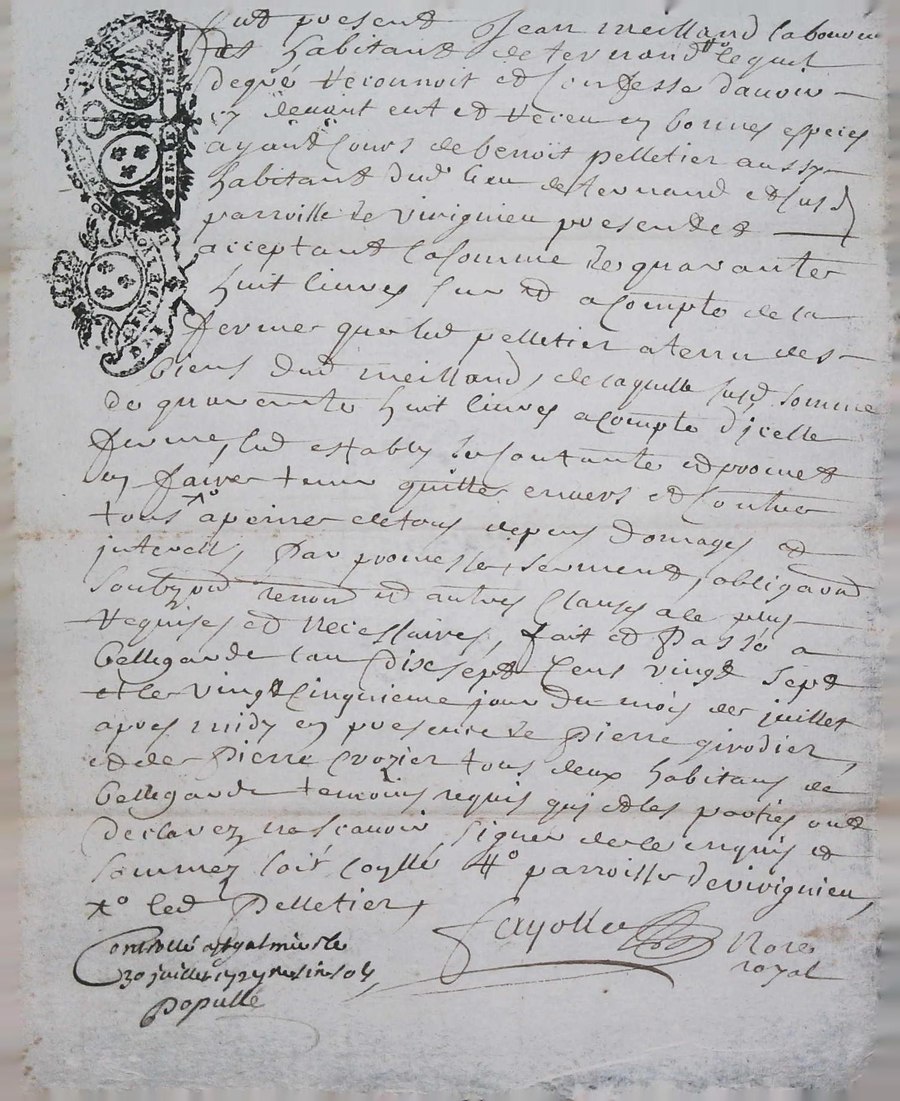 fut present Jean meilland laboureur
et habitant de ternand ++o lequel
de gré reconnoit et confesse d'avoir
cy devant eut et receu en bonnes especes
ayant cours de benoit pelletier aussy
habitant dud lieu de ternand et susd
parroisse de virignieu present et
acceptant la somme de quarante
huit livres sur et a compte de la
ferme que led pelletier a tenu des
biens dud meilland, de laquelle susd somme
de quarente huit livres a compte d'icelle
ferme, led estably se contante et promet
en faire tenir quitte envers et contre
tous a peine de tous depens domages et
interests, par promesse, serment, obligaon
renon et autres clauses a ce plus
requises et necessaires, fait et Passé a
bellegarde l'an disc sept cens vingt sept
et le vingt cinquieme jour du mois de juillet
apres midy en presence de Pierre girodier
et de Pierre crozier tous deux habitans de
bellegarde temoins requis qui et les parties ont
declarez ne scavoir signer de ce enquis et
sommez 4o parroisse de virignieu,
xo led Pelletier,
Fayolle Nore
royal
Controllé a st galmier le
30 juillet 1727
Populle